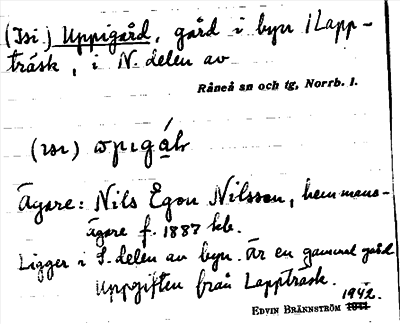 (Isi) Uppigård, gård i byn i Lapp-
träsk, i N. delen av
Råneå sn och tg, Norrb. l.
(ısı)
Ägare: Nils Egon Nilsson, hemmans-
ägare f. 1887 kb.
Ligger i S. delen av byn. Är en gammal gård
Uppgiften från Lappträsk.
1942.
EDVIN BRÄNNSTRÖM 1941